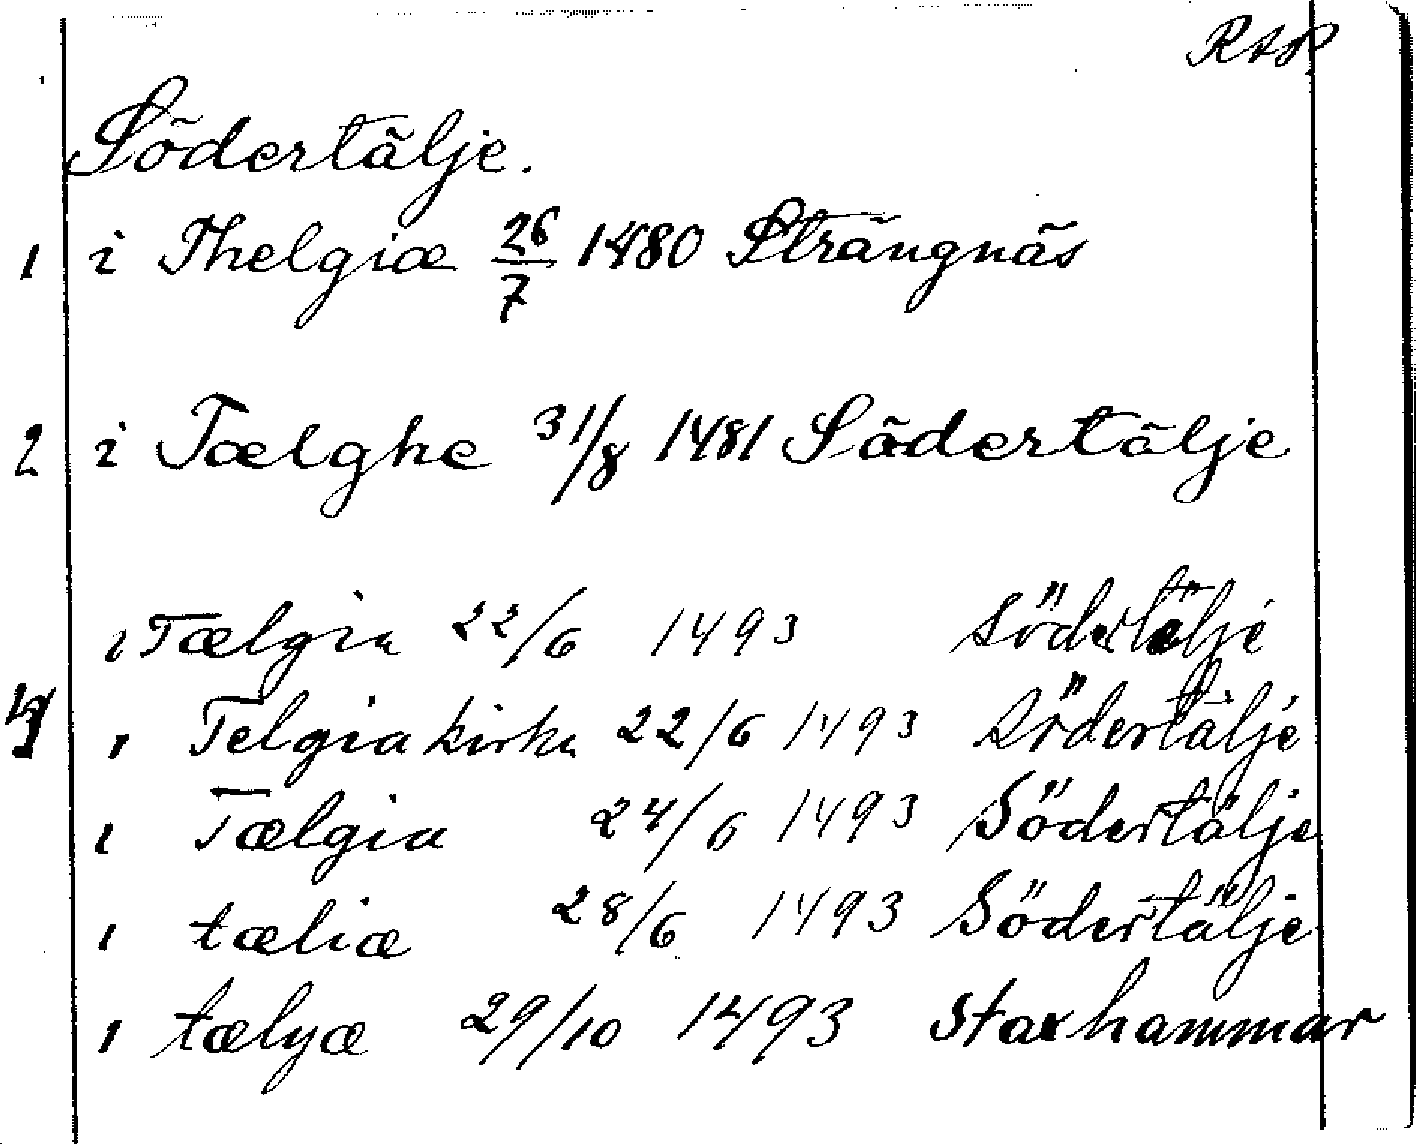 RAP
Södertälje.
1 i Thelgiæ 26/7 1480 Strängnäs
2 i Tælghe 31/8 1481 Södertälje
i Tælgia 22/6 1493 Södertälje
i Telgia kirka 22/6 1493 Södertälje
i Tælgia 24/6 1493 Södertälje
i tæliæ 28/6 1493 Södertälje
i tælyæ 29/10 1493 Staxhammar